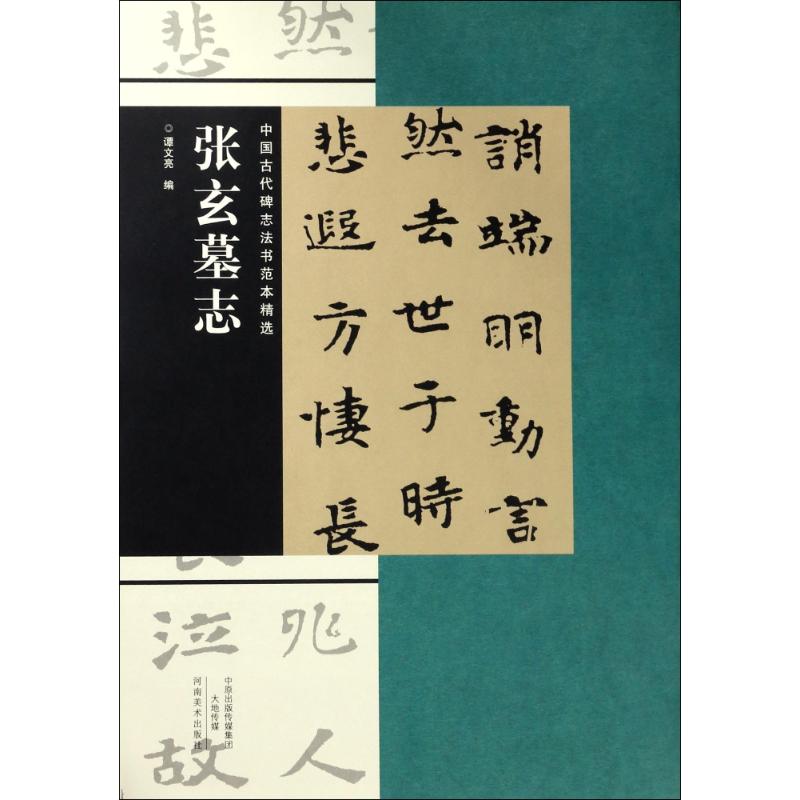 中国古代碑志法书范本精选
张玄墓志
◎谭文亮 编
誚端明動言
然去世于時
悲遐方悽長
然
悲
兆人
泣故
中原出版传媒集团
大地传媒
河南美术出版社